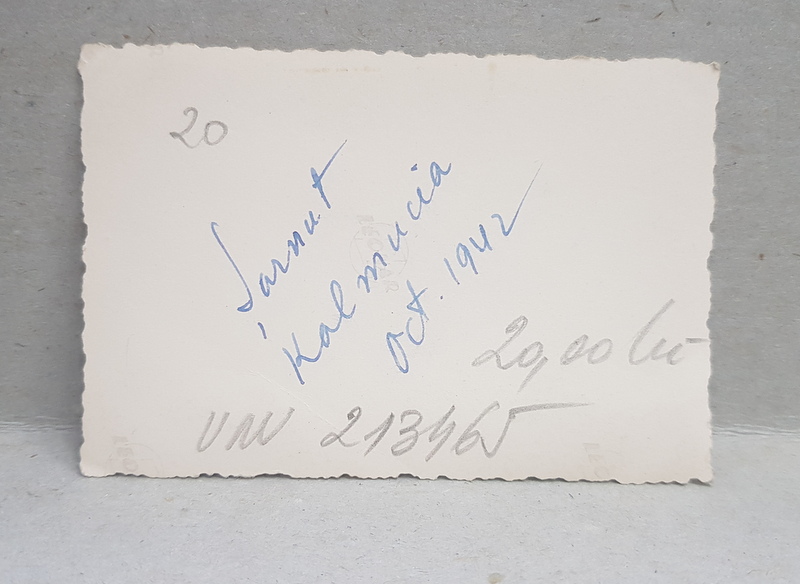 20
Şarnut
Kalmucia
Oct. 1942
20,00 lei
UNV 213465